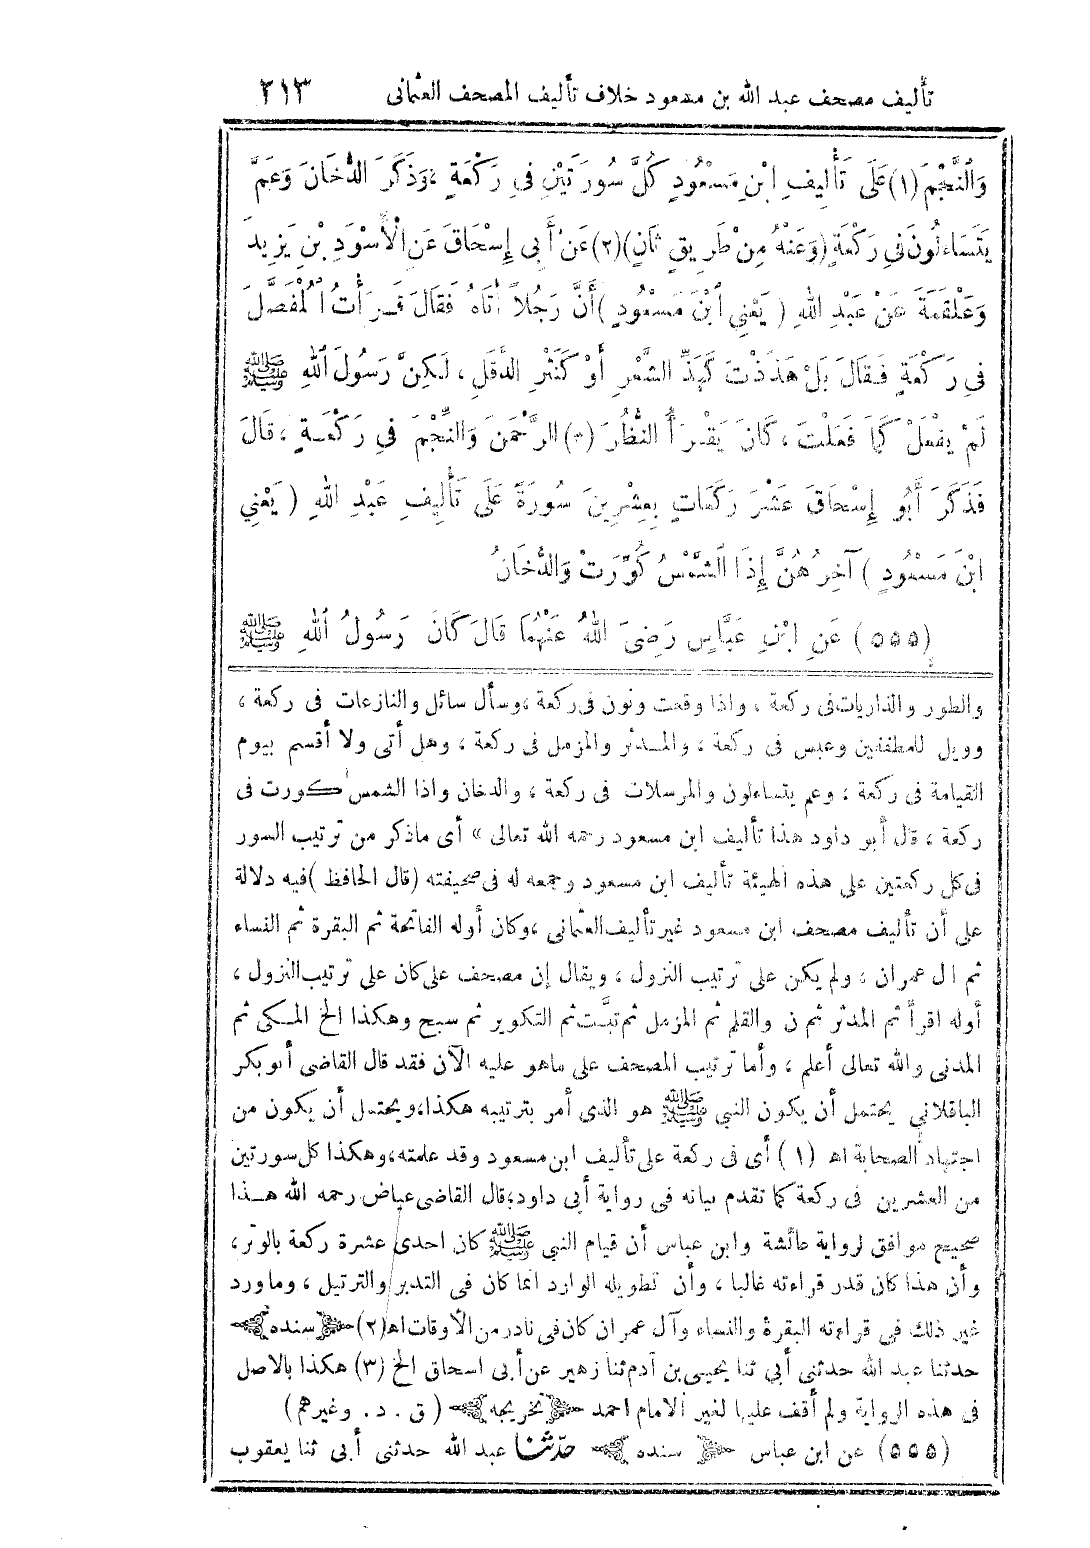 تأليف مصحف عبد الله بن مسعود خلاف تأليف المصحف العثمانى ٢١٣
وَالنَّجْمَ (١) عَلَى تَأْلِيفِ ابْنِ مَسْعُودٍ كُلَّ سُورَتَيْنِ فِي رَكْعَةٍ ، وَذَكَرَ الدُّخَانَ وَعَمَّ
يَتَسَاءَلُونَ فِي رَكْعَةٍ (وَعَنْهُ مِنْ طَرِيقٍ ثَانٍ) (٢) عَنْ أَبِي إِسْحَاقَ عَنِ الْأَسْوَدِ بْنِ يَزِيدَ
وَعَلْقَمَةَ عَنْ عَبْدِ اللهِ ( يَعْنِي ابْنَ مَسْعُودٍ ) أَنَّ رَجُلاً أَتَاهُ فَقَالَ قَرَأْتُ الْمُفَصَّلَ
فِي رَكْعَةٍ فَقَالَ بَلْ هَذَذْتَ كَهَذِّ الشِّعْرِ أَوْ كَنَثْرِ الدَّقَلِ ، لَكِنَّ رَسُولَ اللهِ ﷺ
لَمْ يَفْعَلْ كَمَا فَعَلْتَ ، كَانَ يَقْرَأُ النُّظُرَ (٣) الرَّحْمَنَ وَالنَّجْمَ فِي رَكْعَةٍ ، قَالَ
فَذَكَرَ أَبُو إِسْحَاقَ عَشْرَ رَكَعَاتٍ بِعِشْرِينَ سُورَةً عَلَى تَأْلِيفِ عَبْدِ اللهِ ( يَعْنِي
ابْنَ مَسْعُودٍ ) آخِرُهُنَّ إِذَا الشَّمْسُ كُوِّرَتْ وَالدُّخَانُ
(٥٥٥) عَنِ ابْنِ عَبَّاسٍ رَضِيَ اللهُ عَنْهُمَا قَالَ كَانَ رَسُولُ اللهِ ﷺ
والطور والذاريات فى ركعة ، واذا وقعت ونون فى ركعة ، وسأل سائل والنازعات فى ركعة ،
وويل للمطففين وعبس فى ركعة ، والمدثر والمزمل فى ركعة ، وهل أتى ولا أقسم بيوم
القيامة فى ركعة ؛ وعم يتساءلون والمرسلات فى ركعة ، والدخان واذا الشمس كورت فى
ركعة ، قال أبو داود هذا تأليف ابن مسعود رحمه الله تعالى » أى ماذكر من ترتيب السور
فى كل ركعتين على هذه الهيئة تأليف ابن مسعود وجمعه له فى صحيفته (قال الحافظ ) فيه دلالة
على أن تأليف مصحف ابن مسعود غير تأليف العثمانى ، وكان أوله الفاتحة ثم البقرة ثم النساء
ثم ال عمران ، ولم يكن على ترتيب النزول ، ويقال إن مصحف على كان على ترتيب النزول ،
أوله اقرأ ثم المدثر ثم ن والقلم ثم المزمل ثم تبَّت ثم التكوير ثم سبح وهكذا الخ المكى ثم
المدنى والله تعالى أعلم ، وأما ترتيب المصحف على ماهو عليه الآن فقد قال القاضى أبوبكر
الباقلانى يحتمل أن يكون النبى ﷺ هو الذى أمر بترتيبه هكذا، ويحتمل أن يكون من
اجتهاد الصحابة اه (١) أى فى ركعة على تأليف ابن مسعود وقد علمته، وهكذا كل سورتين
من العشرين فى ركعة كما تقدم بيانه فى رواية أبى داود؛ قال القاضى عياض رحمه الله هذا
صحيح موافق لرواية عائشة وابن عباس أن قيام النبى ﷺ كان احدى عشرة ركعة بالوتر،
وأن هذا كان قدر قراءته غالبا ، وأن تطويله الوارد انما كان فى التدبر والترتيل ، وماورد
غير ذلك فى قراءته البقرة والنساء وآل عمران كان فى نادر من الأوقات اه (٢) سنده
حدثنا عبد الله حدثنى أبي ثنا يحيى بن آدم ثنا زهير عن أبى اسحاق الخ (٣) هكذا بالاصل
فى هذه الرواية ولم أقف عليها لغير الامام احمد تخريجه ( ق . د . وغيرهم )
(٥٥٥) عن ابن عباس سنده حدّثنا عبد الله حدثنى أبى ثنا يعقوب